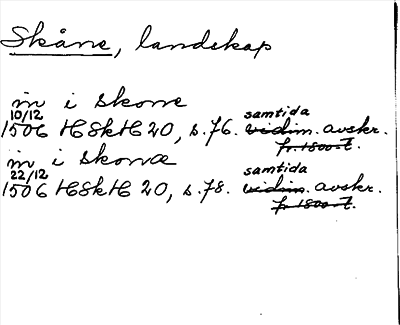 Skåne, landskap
in i skone
10/12 samtida
1506 HSkH 20, s. 76. vidim. avskr.
fr. 1800-t.
in i skonæ
22/12 samtida
1506 HSkH 20, s. 78. vidim. avskr.
fr. 1800-t.